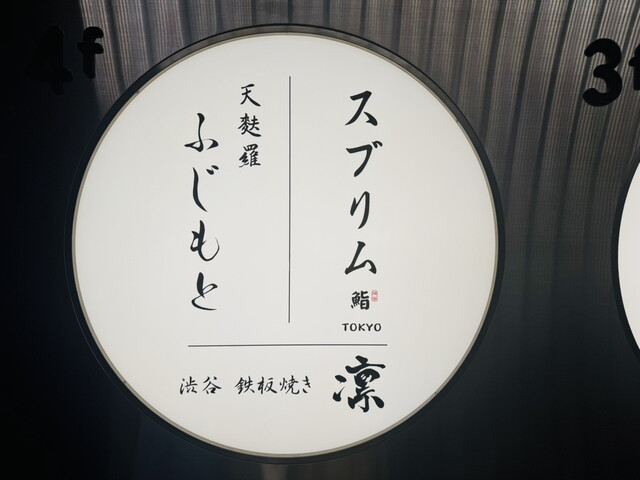 4f
3f
スブリム
鮨
TOKYO
天麩羅
ふじもと
渋谷 鉄板焼き 凛